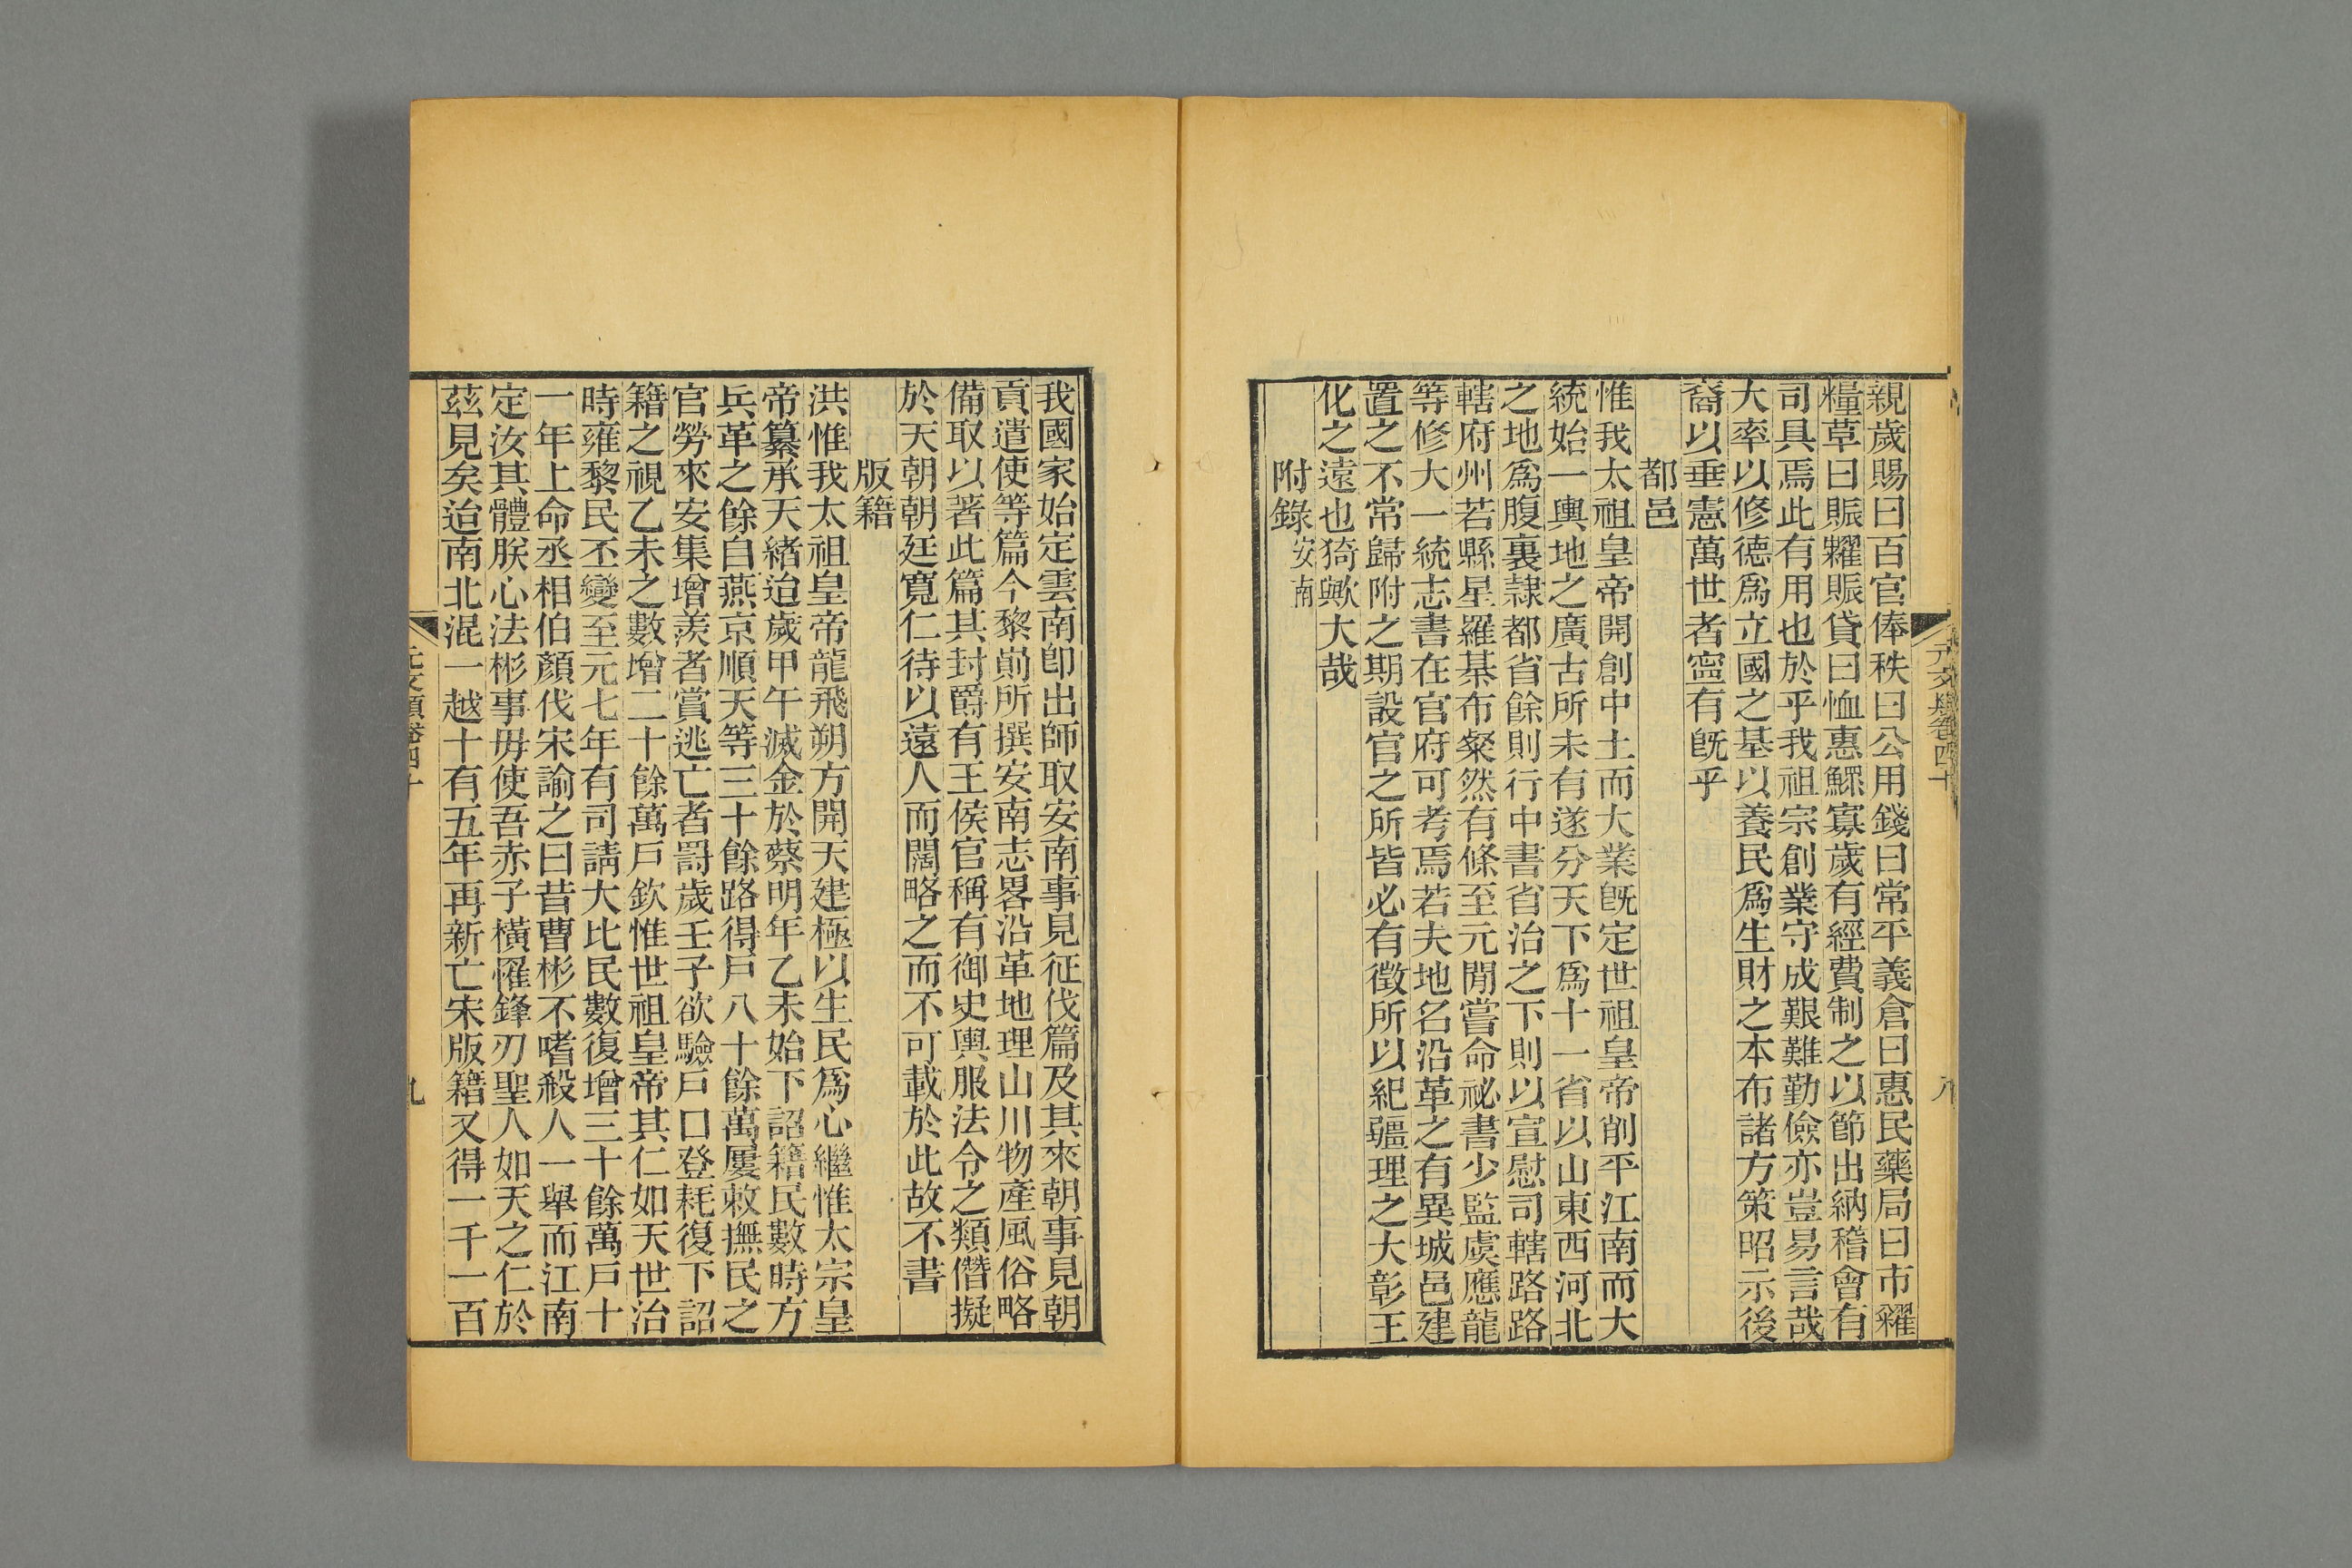 親歲賜曰百官俸秩曰公用錢曰常平義倉曰惠民藥局曰市糴
糧草曰賑糶賑貸曰恤惠鰥寡歲有經費制之以節出納稽會有
司具焉此有用也於乎我祖宗創業守成艱難勤儉亦豈易言哉
大率以修德爲立國之基以養民爲生財之本布諸方策昭示後
裔以垂憲萬世者寍有旣乎
都邑
惟我太祖皇帝開創中土而大業旣定世祖皇帝削平江南而大
統始一輿地之廣古所未有遂分天下爲十一省以山東西河北
之地爲腹裏隷都省餘則行中書省治之下則以宣慰司轄路路
轄府州若縣星羅棊布粲然有條至元閒嘗命祕書少監虞應龍
等修大一統志書在官府可考焉若夫地名沿革之有異城邑建
置之不常歸附之期設官之所皆必有徵所以紀疆理之大彰王
化之遠也猗歟大哉
附錄安南
元文類卷四十
八
我國家始定雲南卽出師取安南事見征伐篇及其來朝事見朝
貢遣使等篇今黎崱所撰安南志畧沿革地理山川物產風俗略
備取以著此篇其封爵有王侯官稱有御史輿服法令之類僭擬
於天朝朝廷寬仁待以遠人而闊略之而不可載於此故不書
版籍
洪惟我太祖皇帝龍飛朔方開天建極以生民爲心繼惟太宗皇
帝纂承天緒迨歲甲午滅金於蔡明年乙未始下詔籍民數時方
兵革之餘自燕京順天等三十餘路得戶八十餘萬屢敕撫民之
官勞來安集增羨者賞逃亡者罰歲壬子欲驗戶口登耗復下詔
籍之視乙未之數增二十餘萬戶欽惟世祖皇帝其仁如天世治
時雍黎民丕變至元七年有司請大比民數復增三十餘萬戶十
一年上命丞相伯顏伐宋諭之曰昔曹彬不嗜殺人一舉而江南
定汝其體朕心法彬事毋使吾赤子橫罹鋒刃聖人如天之仁於
茲見矣迨南北混一越十有五年再新亡宋版籍又得一千一百
元文類卷四十
九